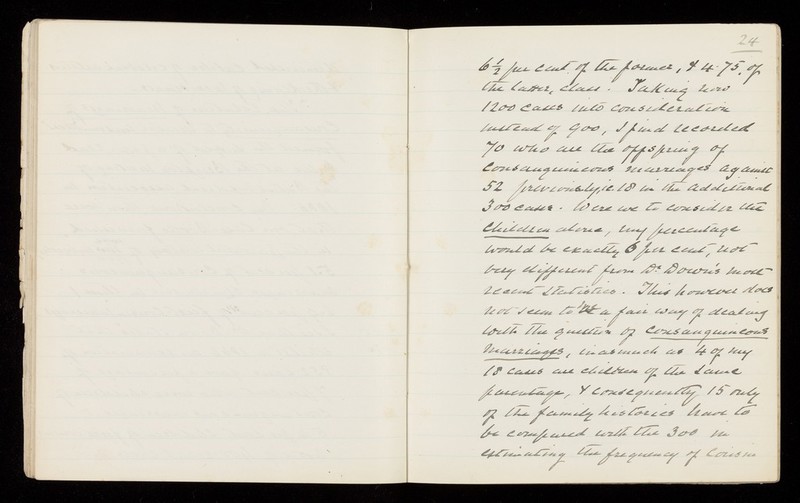 24
6½ per cent. of the former, & 4.75. of
the latter, class. Taking now
1200 cases into consideration
instead of 900, I find recorded
70 who are the offspring of
consanguineous marriages against
52 previously, ie 18 in the additional
300 cases. Were we to consider the
children alone, my percentage
would be exactly 6 per cent, not
very different from Dr Down's most
recent statistics. This however does
not seem to be a fair way of dealing
with the question of consanguineous
marriages, inasmuch as 4 of my
18 cases are children of the same
parentage, & consequently 15 only
of the family histories have to
be compared with the 300 in
estimating the frequency of cousin